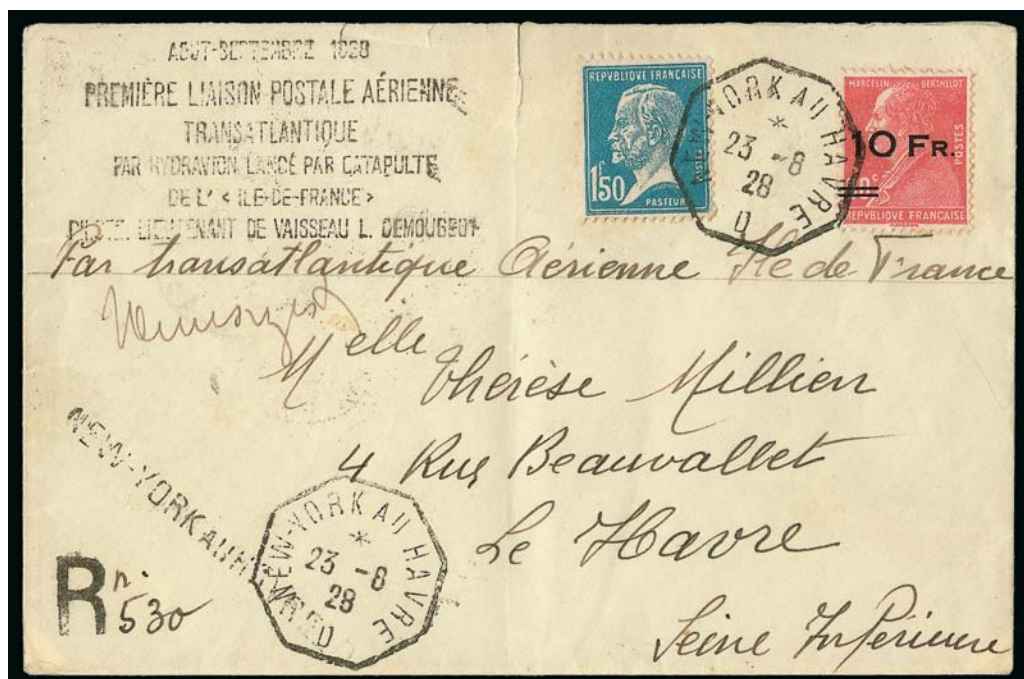 AOUT-SEPTEMBRE 1928
PREMIÈRE LIAISON POSTALE AÉRIENNE
TRANSATLANTIQUE
PAR HYDRAVION LANCÉ PAR CATAPULTE
DE L' < ILE-DE-FRANCE >
PILOTE: LIEUTENANT DE VAISSEAU L. DEMOUGEOT
REPVBLIQVE FRANÇAISE
1F50
PASTEUR
NEW-YORK AU HAVRE
*
23 -8
28
D
MARCELIN BERTHELOT
10 FR.
POSTES
REPVBLIQVE FRANÇAISE
Par transatlantique Aérienne Ile de France
Melle Thérèse Millien
4 Rue Beauvallet
Le Havre
Seine Inférieure
NEW-YORK AU HAVRE
R n. 530
NEW-YORK AU HAVRE
*
23 -8
28
D